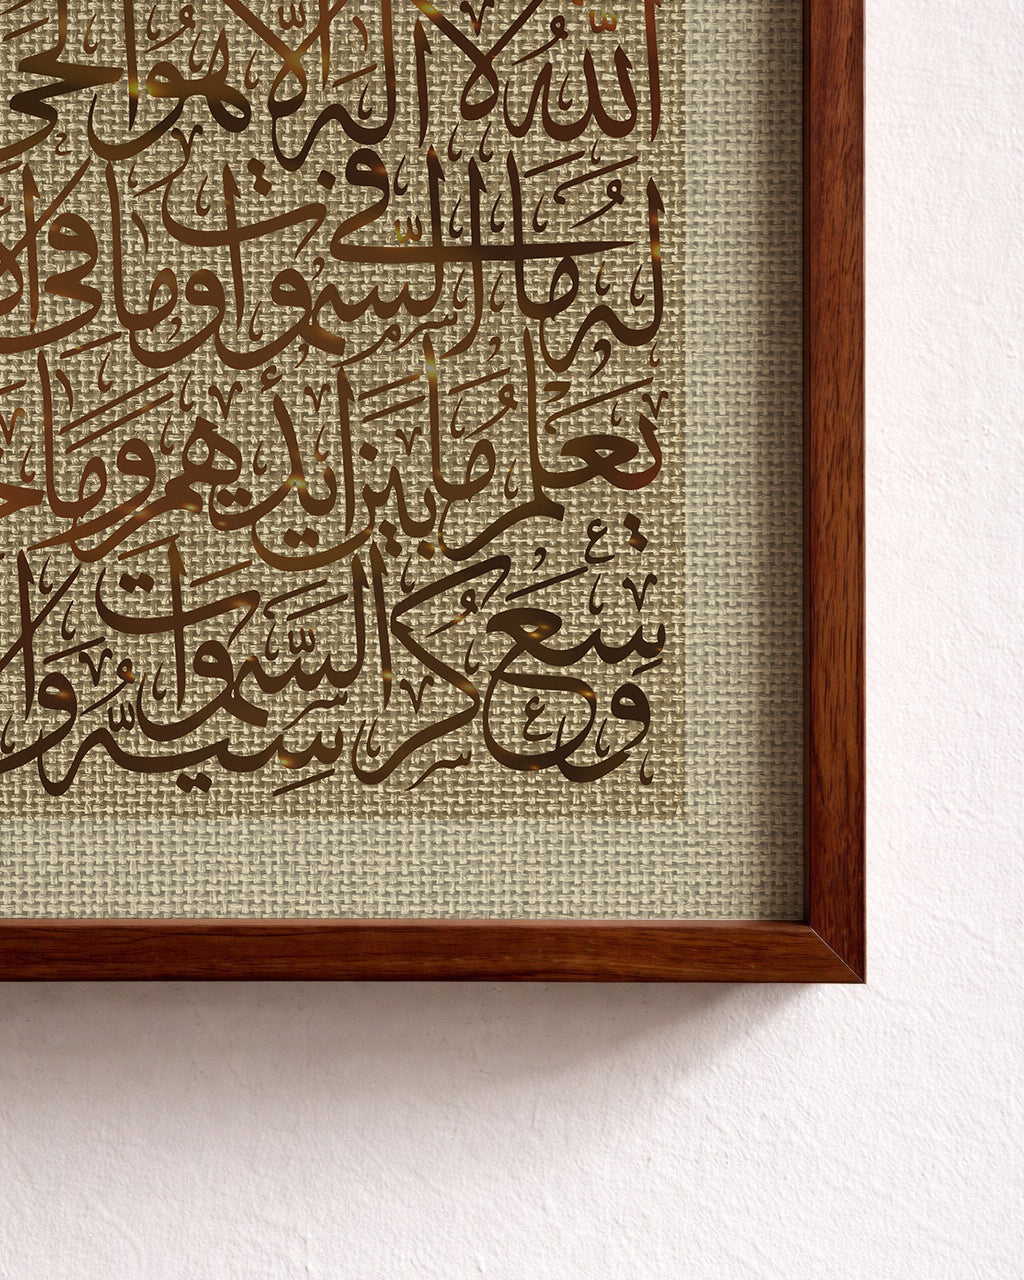 اللَّهُ لَا إِلَٰهَ إِلَّا هُوَ الْحَيُّ
لَهُ مَا فِي السَّمَٰوَاتِ وَمَا فِي
يَعْلَمُ مَا بَيْنَ أَيْدِيهِمْ وَمَا
وَسِعَ كُرْسِيُّهُ السَّمَٰوَاتِ وَ